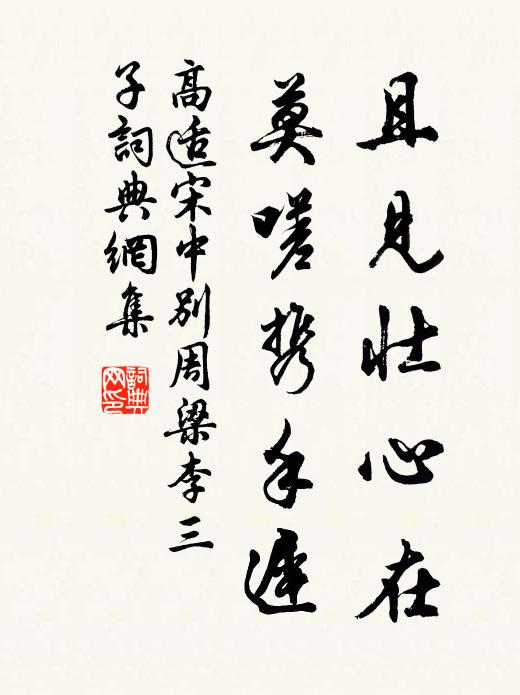 且見壯心在
莫嗟携手遲
高適宋中別周梁李三
子詞典網集
詞典网印